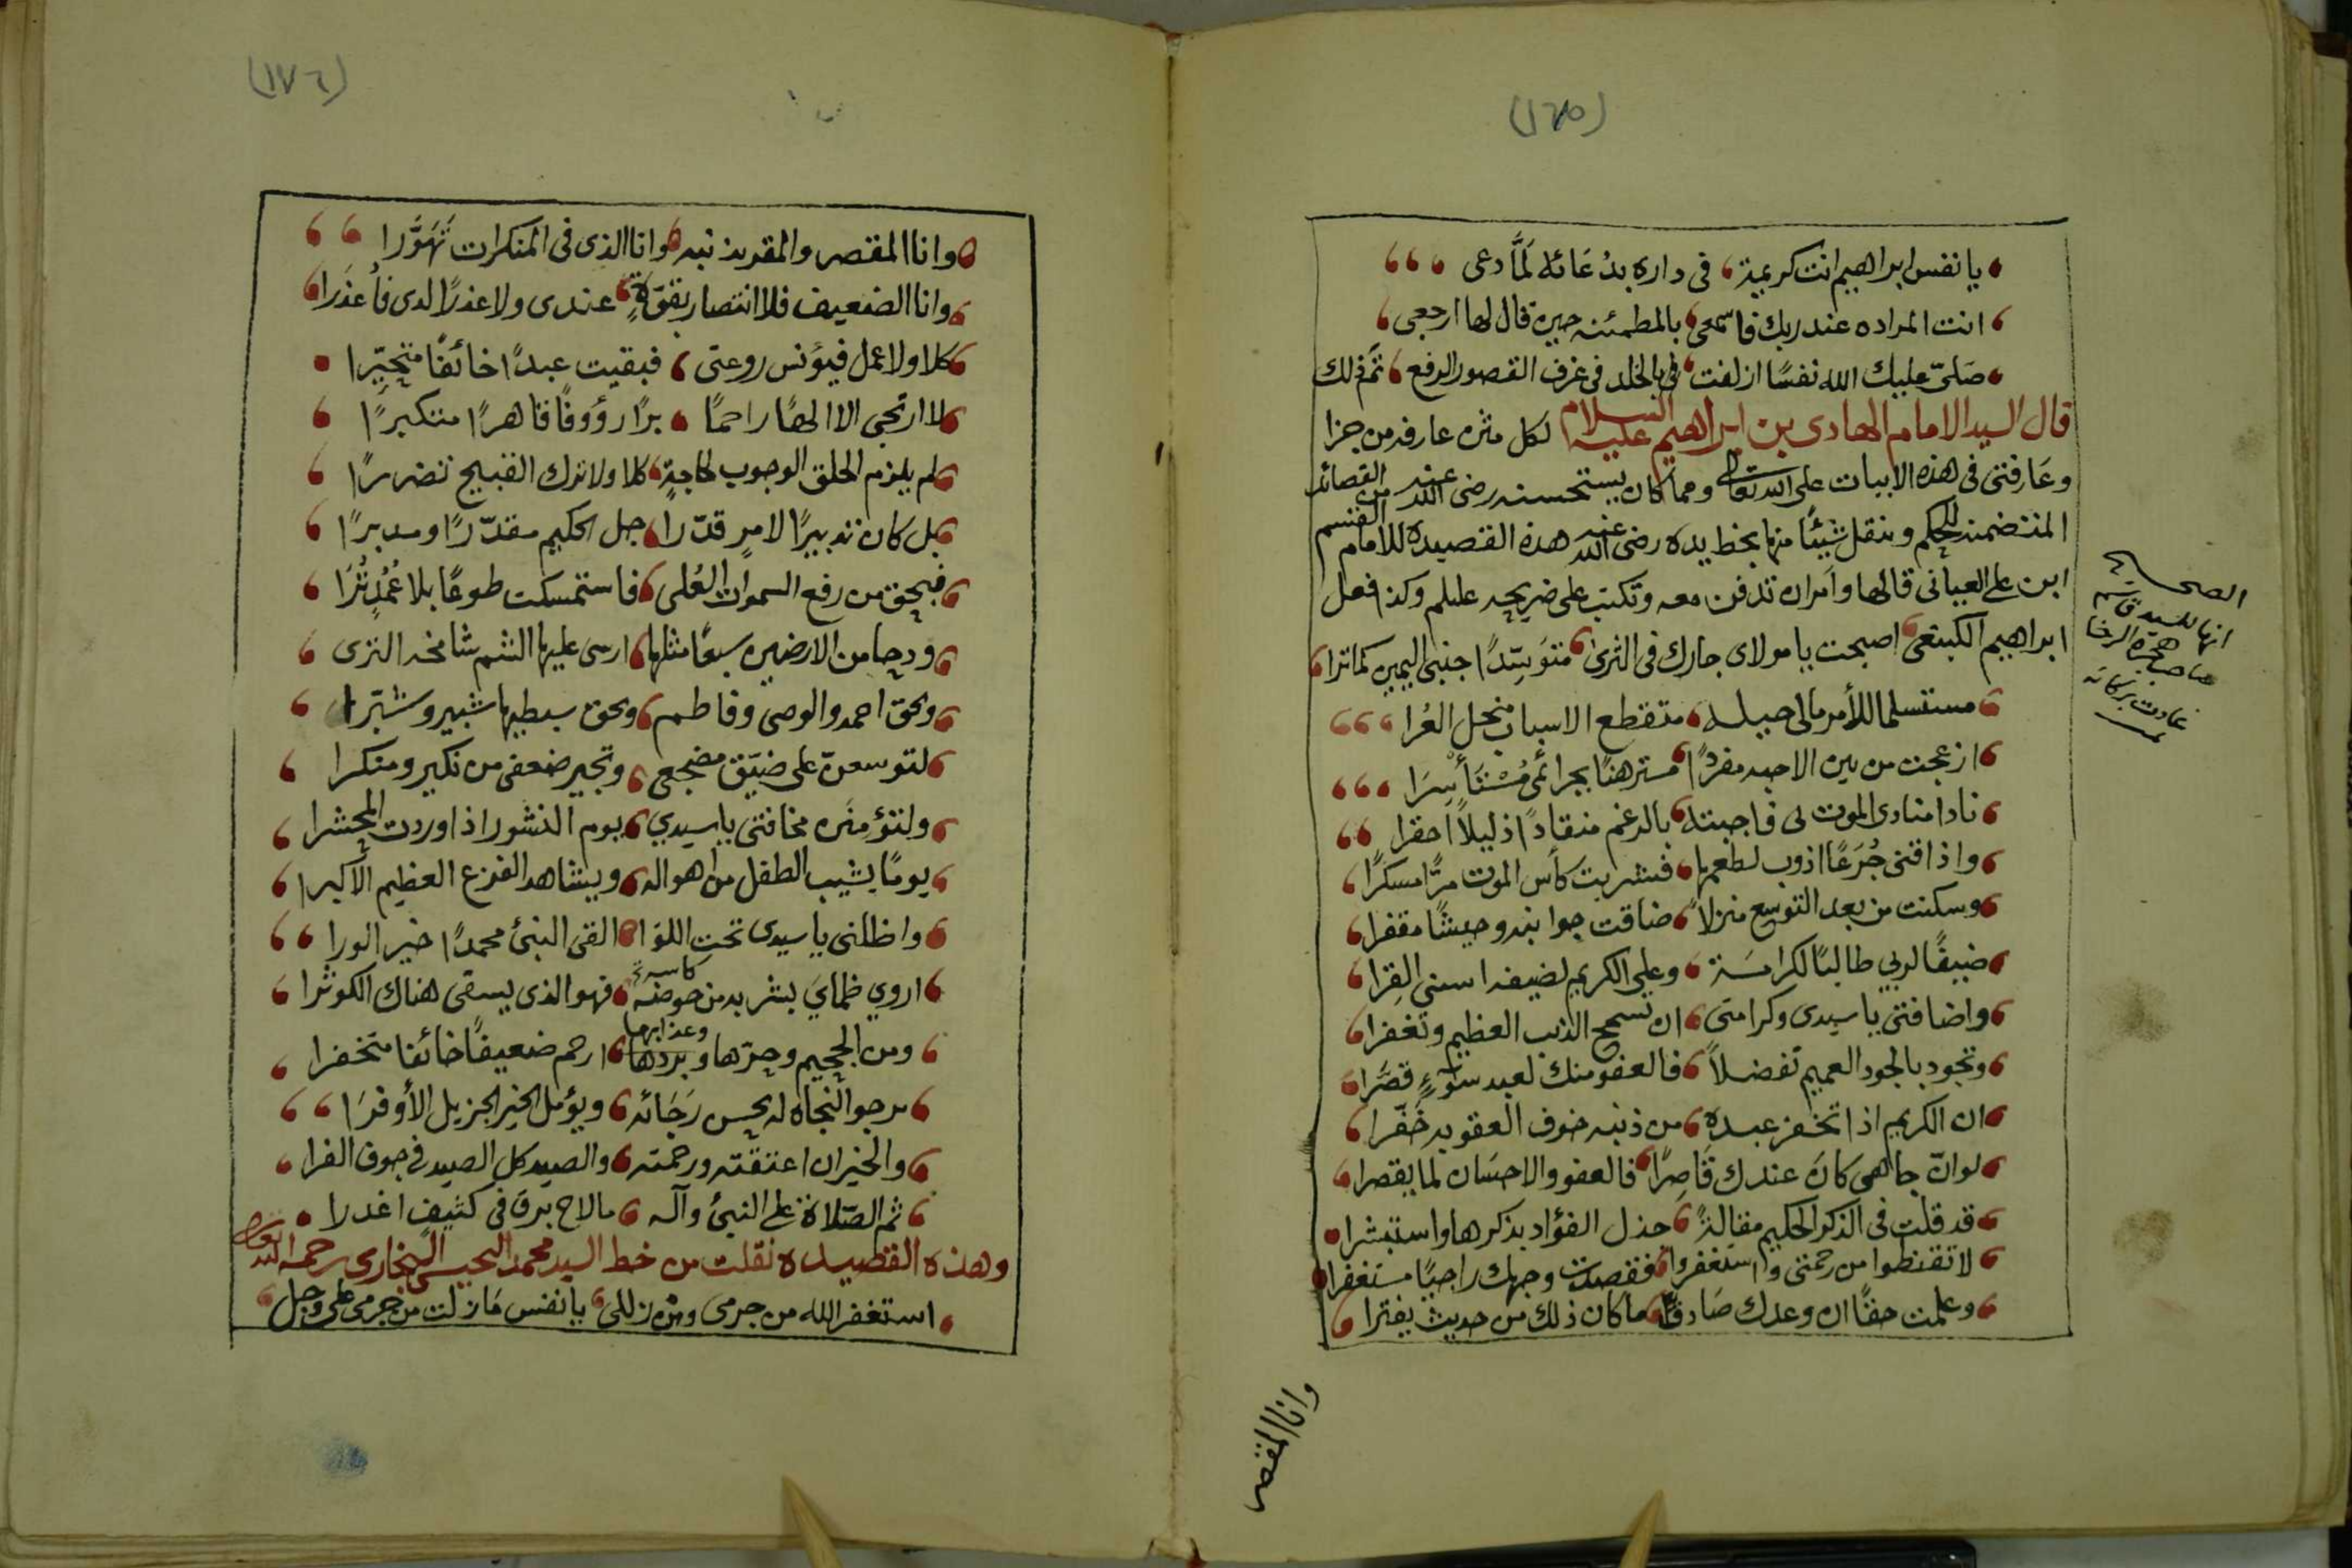 (١٧٥)
يا نفس ابراهيم انت كريمة في داره بدُعَائه لَمَّا دعى
انت المراده عند ربك فاسمعي بالمطمئنه حين قال لها ارجعي
صَلىّ عليك الله نفسًا ازلفت في الخلد في غرف القصور الرفع تم ذلك
قال السيد الامام الهادى بن ابراهيم عليه السلام لكل مثن عارفه من جزا
وعَارفتى فى هذه الابيات على الله تعالى ومما كان يستحسنه رضى الله عنه من القصائد
المتضمنه للحكم وينقل شيئًا منها بخط يده رضى الله عنه هذه القصيده للامام القسم
ابن على العيانى قالها وامر ان تدفن معه وتكتب على ضريحه عليلم وكذا فعل
ابراهيم الكينعى اصبحت يا مولاى جارك فى الثرى متوَسِّدًا جنبى اليمين كما ترا
مستسلما للأمر مالى حيله متقطع الاسباب منحل العُرا
ازعجت من بين الاحبه مفردًا مسترهنًا بجرائمى مُسْتَأسِرَا
نادا منادى الموت لى فاجبته بالرغم منقادًا ذليلًا احقرا
واذاقنى جُرَعًا اذوب لطعمها فشربت كأس الموت مرًّا مسكرًا
وسكنت من بعد التوسع منزلًا ضاقت جوانبه وحيشًا مقفرا
ضيفًا لربي طالبًا لكرامَة وعلى الكريم لضيفه اسنى القِرا
واضافتى يا سيدى وكرامتى ان تسمح الذنب العظيم وتغفرا
وتجود بالجود العميم تفضلاً فالعفو منك لعبد سوءٍ قصَّرا
ان الكريم اذا تخفر عبده من ذنبه خوف العقوبه خَفّرا
لوانّ جاهى كان عندك قَاصِرًا فالعفو والاحسَان لما يقصرا
قد قلت فى الذكر الحكيم مقالةً جذل الفؤاد بذكرها واستبشرا
لا تقنطوا من رحمتى واستغفروا فقصدت وجهك راجيًا مستغفرا
وعلمت حقًّا ان وعدك صَادقًا ما كان ذلك من حديث يفترا
انها للسيد قاسم
صاحب هجرة
عادت بركاته
وانا المقصر
(١٧٦)
وانا المقصر والمقر بذنبه وانا الذى فى المنكرات تَهَوَّرا
وانا الضعيف فلا انتصار بقوّةٍ عندى ولا عذرًا لدى فأعذرَا
كلا ولا عمل فيؤنس روعتى فبقيت عبدًا خائفًا متحيّرا
لا ارتجى الا الهًا راحمًا برًا رؤوفًا قاهرًا متكبرًا
لم يلزم الخلق الوجوب لحاجةٍ كلا ولا ترك القبيح تضررًا
بل كان تدبيرًا لامرٍ قدّرا جل الحكيم مقدّرًا ومدبرًا
فبحق من رفع السموات العُلى فاستمسكت طوعًا بلا عُمُدٍ تُرَا
ودحا من الارضين سبعًا مثلها ارسى عليها الشم شامخه الذرى
وبحق احمد والوصى وفاطم وبحق سبطيها شبير وشبّرا
لتوسعنّ على ضيّق مضجعى وتجير ضعفى من نكير ومنكرا
ولتؤمنن مخافتى يا سيدي يوم النشور اذا وردت المحشرا
يومًا يشيب الطفل من اهواله ويشاهد الفزع العظيم الاكبرا
واظلنى يا سيدى تحت اللوا القى النبئ محمدًا خير الورا
اروي ظماي بشربه من حوضه كاسه فهو الذى يسقى هناك الكوثرا
ومن الجحيم وحرّها وبردها وعذابها ارحم ضعيفًا خائفا متخفرا
يرجوا النجاه له بحسن رَجَائه ويؤمل الخير الجزيل الأوفرَا
والخير ان اعتقته ورحمته والصيد كل الصيد فى جوف الفرا
ثم الصّلاة على النبئ وآله مالاح برق فى كثيفٍ اغدرا
وهذه القصيده نقلت من خط السيد محمد البخارى رحمه الله تعالى
استغفر الله من جرمى ومن زللى يا نفس مازلت من جرمى على وجل